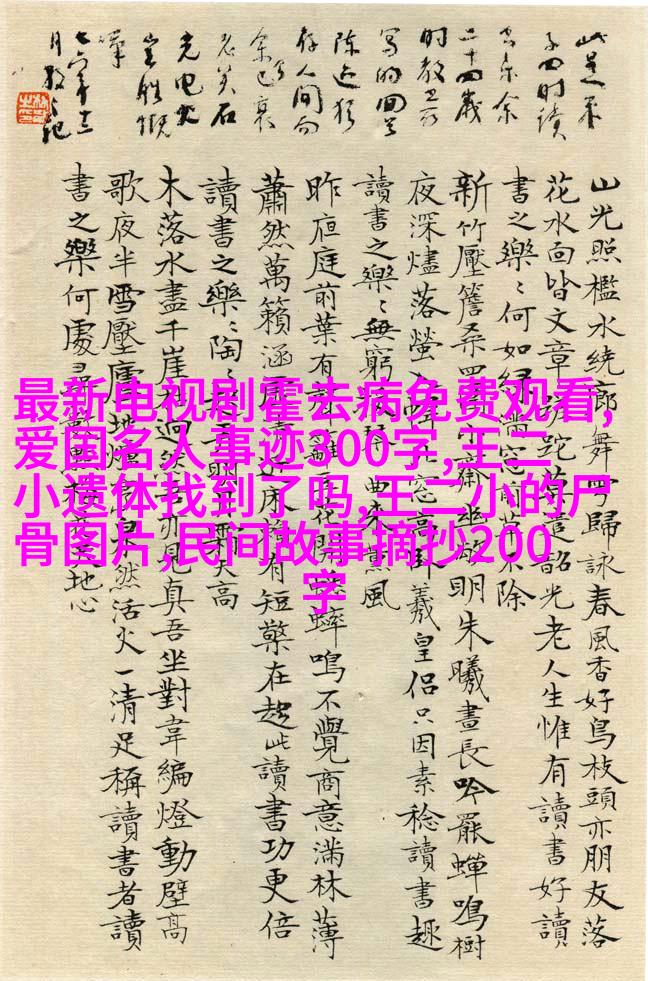 最新电视剧霍去病免费观看,
爱国名人事迹300字,王二
小遗体找到了吗,王二小的尸
骨图片,民间故事摘抄200
字
四时读
书乐余
二十四歲
陈迹犹
存人间而
余已衰
老矣石
光电火
岂胜慨
山光照檻水繞廊舞雩歸詠春風香好鳥枝頭亦朋友落
花水面皆文章蹉跎莫遣韶光老人生惟有讀書好讀
書之樂〻何如綠滿窓前草不除
新竹壓簷桑四圍小齋幽敞明朱曦晝長吟罷蟬鳴樹
夜深燼落螢入幃北窓高卧羲皇侣只因素稔讀書趣
讀書之樂〻無窮瑤琴一曲来薰風
昨夜庭前葉有聲籬豆花開蟋蟀鳴不覺商意滿林薄
蕭然萬籟涵虚清近床賴有短檠在趁此讀書功更倍
讀書之樂〻陶〻起弄明月霜天高
木落水盡千崖枯迥然吾亦見真吾坐對韋編燈動壁高
歌夜半雪壓廬地爐茶鼎烹活火一清足稱讀書者讀
書之樂何處尋數點梅花天地心